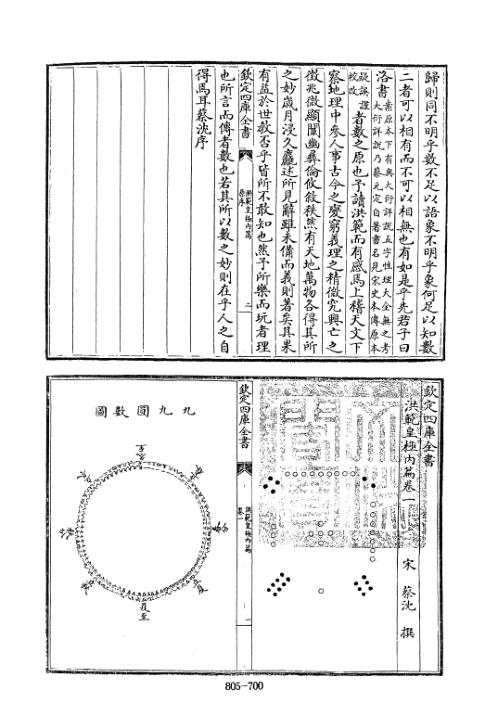 歸則同不明乎數不足以語象不明乎象何足以知數
二者可以相有而不可以相無也有如是乎先君子曰
洛書
案原本下有與大衍詳説五字性理大全無之考
大衍詳説乃蔡元定自著書名見宋史本傳原本
疑誤謹
校改
者數之原也予讀洪範而有感焉上稽天文下
察地理中參人事古今之變窮義理之精微究興亡之
徵兆微顯闡幽彝倫攸敘秩然有天地萬物各得其所
之妙歲月浸久麤述所見辭雖未備而義則著矣其果
有益於世教否乎皆所不敢知也然予所樂而玩者理
欽定四庫全書
洪範皇極内篇
原序
二
也所言而傳者數也若其所以數之妙則在乎人之自
得焉耳蔡沈序
欽定四庫全書
洪範皇極内篇卷一
宋 蔡沈 撰
欽定四庫全書
洪範皇極内篇
卷一
一
九九圓數圖
冬至
夏至
805-700